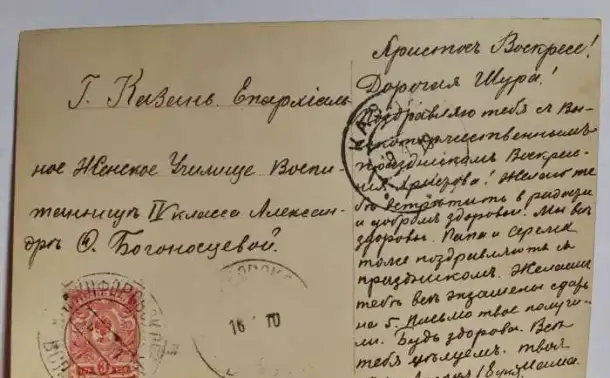 Г. Казань. Епархіаль
ное Женское Училище Воспи-
танницѣ IV класса Алексан-
дрѣ Ѳ. Богоносцевой.
Христосъ Воскресе!
Дорогая Шура!
Поздравляю тебя съ Вы-
сокоторжественнымъ
праздникомъ Воскресе-
нія Христова! Желаю те
бѣ встрѣтить въ радости
и добромъ здоровьи. Мы всѣ
здоровы. Папа и
тоже поздравляютъ съ
праздникомъ. Желаемъ
тебѣ всѣ экзамены сдать
на 5. Письмо твое получи-
ли. Будь здорова. Всѣ
тебя цѣлуемъ. твоя
Мама.
3